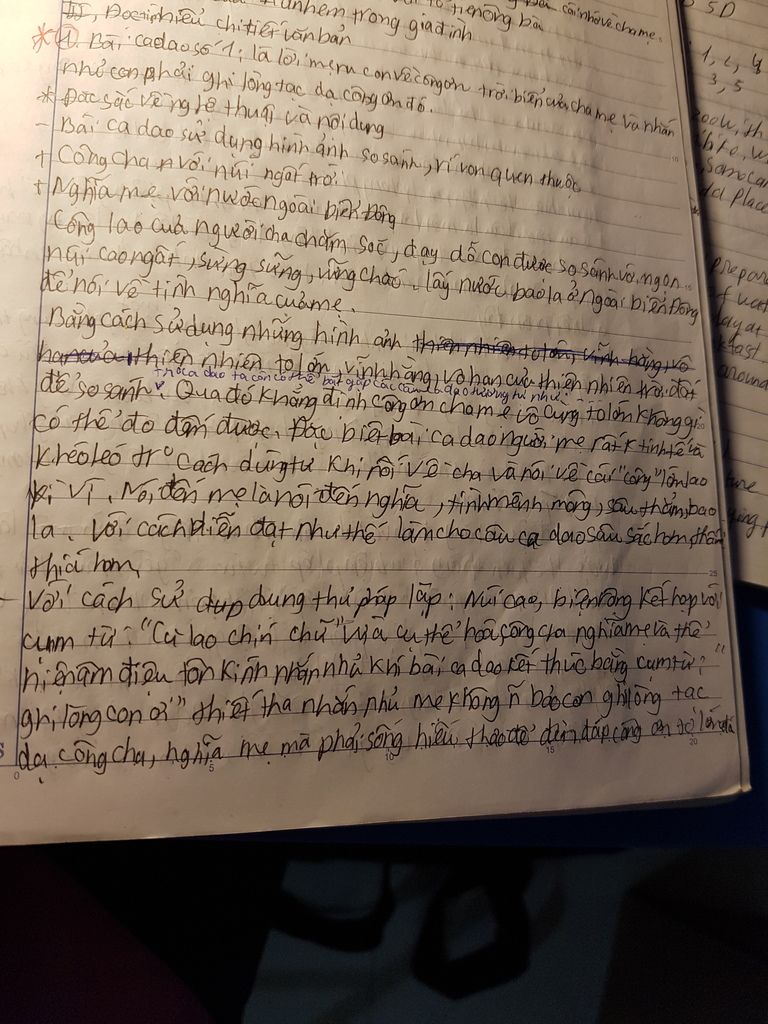 anh em trong gia đình
II, Đọc hiểu chi tiết văn bản
* 1. Bài ca dao số 1: là lời mẹ ru con về công ơn trời biển của cha mẹ và nhắn
nhủ con phải ghi lòng tạc dạ công ơn đó.
* Đặc sắc về nghệ thuật và nội dung
- Bài ca dao sử dụng hình ảnh so sánh, ví von quen thuộc
+ Công cha với núi ngất trời
+ Nghĩa mẹ với nước ngoài biển Đông
Công lao của người cha chăm sóc, dạy dỗ con được so sánh với ngọn
núi cao ngất, sừng sững, vững chắc. lấy nước bao la ở ngoài biển Đông
để nói về tình nghĩa của mẹ.
Bằng cách sử dụng những hình ảnh thiên nhiên to lớn, vĩnh hằng, vô
hạn của thiên nhiên to lớn, vĩnh hằng, vô hạn của thiên nhiên trời đất
Trong ca dao ta còn có thể bắt gặp các câu ca dao tương tự như:
để so sánh. Qua đó khẳng định công ơn cha mẹ vô cùng to lớn không gì
có thể đo đếm được. Đặc biệt bài ca dao người mẹ rất tinh tế và
khéo léo tr° cách dùng từ khi nói về cha và nói về cái "công" lớn lao
kì vĩ. Nói đến mẹ là nói đến nghĩa, tình mênh mông, sâu thẳm, bao
la. Với cách diễn đạt như thế làm cho câu ca dao sâu sắc hơn, thấm
thía hơn.
Với cách sử dụng thủ pháp lặp: Núi cao, biển rộng kết hợp với
cụm từ: "Cù lao chín chữ" vừa cụ thể hoá công cha nghĩa mẹ và thể
hiện âm điệu tôn kính nhắn nhủ khi bài ca dao kết thúc bằng cụm từ: "
ghi lòng con ơi" thiết tha nhắn nhủ mẹ không ~ bảo con ghi lòng tạc
dạ công cha, nghĩa mẹ mà phải sống hiếu thảo để đền đáp công ơn to lớn đó